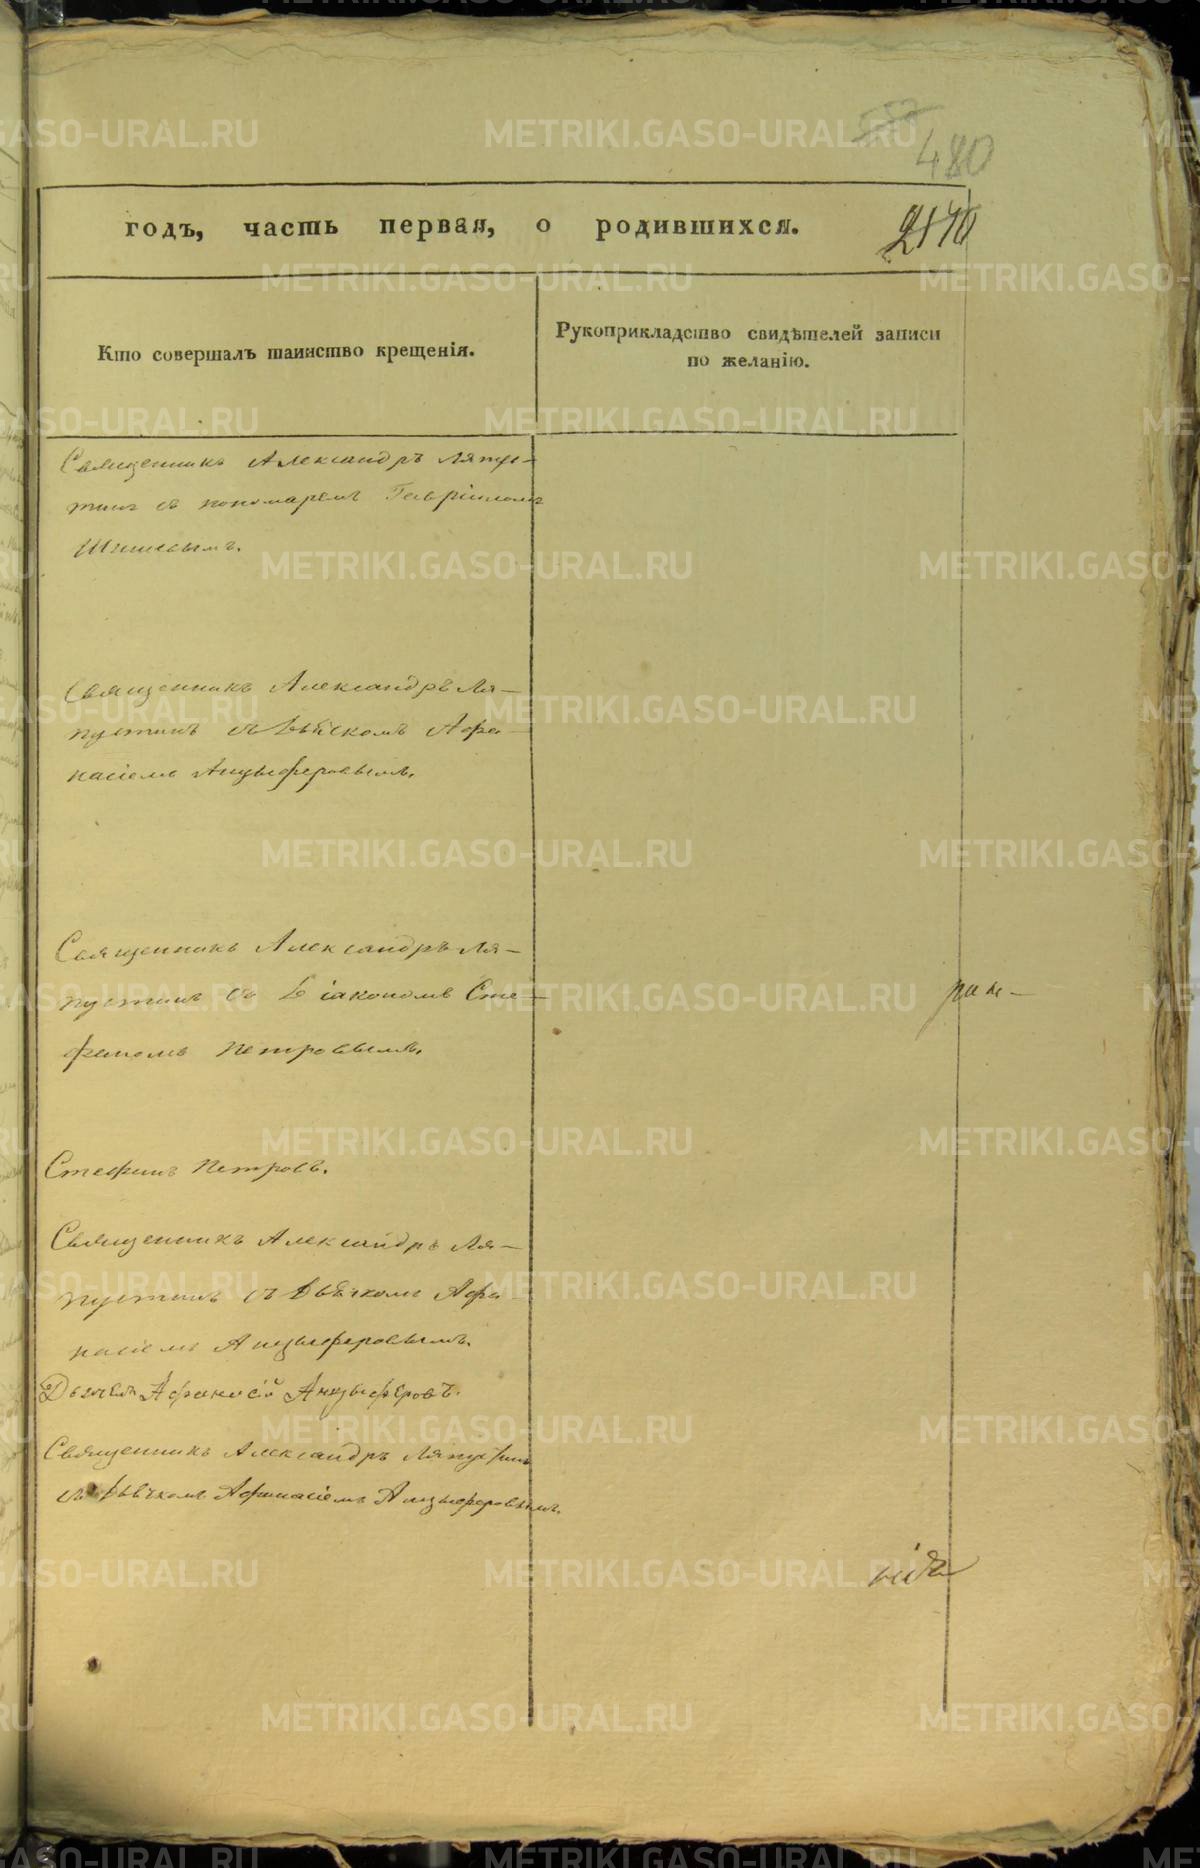 480
годъ, часть первая, о родившихся.
Кто совершалъ таинство крещенія.
Рукоприкладство свидѣтелей записи
по желанію.
Священникъ Александръ Ляпус-
тинъ съ пономаремъ Гавріиломъ
Священникъ Александръ Ля-
пустинъ съ Дьячкомъ Афа-
насіемъ Анцыферовымъ.
Священникъ Александръ Ля-
пустинъ съ Діакономъ Сте-
фаномъ Петровымъ.
Стефанъ Петровъ.
Священникъ Александръ Ля-
пустинъ съ Дьячкомъ Афа-
насіемъ Анцыферовымъ.
Дьячекъ Афанасій Анцыферовъ.
Священникъ Александръ Ляпустинъ
съ Дьячкомъ Афанасіемъ Анцыферовымъ.
METRIKI.GASO-URAL.RU